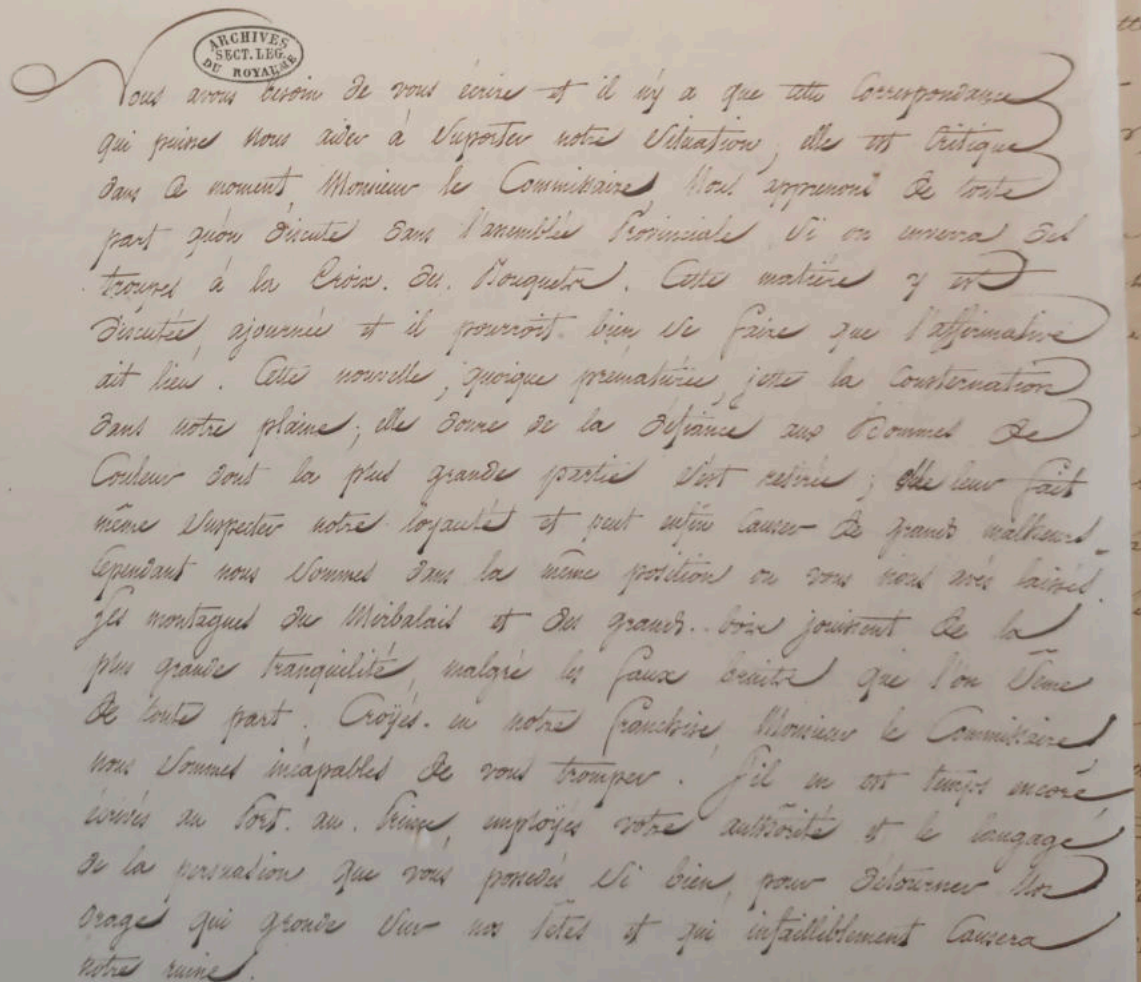 ARCHIVES
SECT. LEG.
DU ROYAUME
Nous avons besoin de vous écrire et il n'y a que cette Correspondance
qui puisse nous aider à Suporter notre Situation, elle est Critique
dans ce moment, Monsieur le Commissaire, Nous apprenons de toute
part qu'on discute dans l'assemblée Provinciale Si on enverra des
troupes à la Croix. des. Bouquets. Cette matière y est
discutée, ajournée et il pourroit bien Se faire que l'affirmative
ait lieu. Cette nouvelle, quoique prématurée, jette la Consternation
dans notre plaine; elle donne de la défiance aux hommes de
Couleur dont la plus grande partie S'est retirée; elle leur fait
même Suspecter notre loyauté et peut enfin Causer de grands malheurs.
Cependant nous Sommes dans la même position ou vous nous avés laissés.
Les montagnes du Mirbalais et des grands. bois jouissent de la
plus grande tranquilité, malgré les faux bruits que l'on Sème
de toute part. Croÿés. en notre franchise, Monsieur le Commissaire,
nous Sommes incapables de vous tromper. S'il en est temps encore,
écrivés au Port. au. Prince, employés votre authorité et le langage
de la persuasion que vous possedés Si bien, pour détourner
orage qui gronde Sur nos têtes et qui infailliblement Causera
notre ruine.